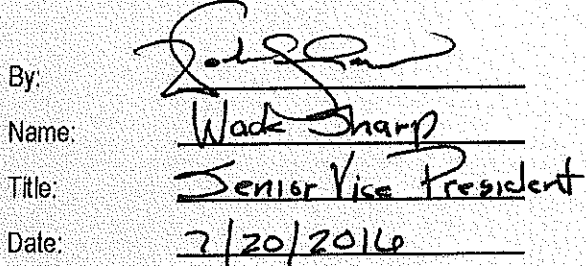 By:
Name: Wade Sharp
Title: Senior Vice President
Date: 7/20/2016